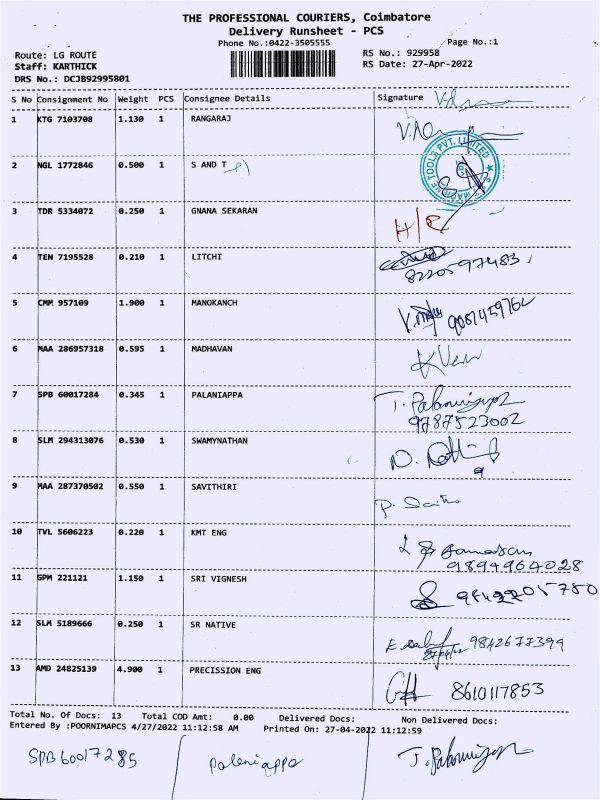 THE PROFESSIONAL COURIERS, Coimbatore
Delivery Runsheet - PCS
Phone No.:0422-3505555
Page No.:1
Route: LG ROUTE
RS No.: 929958
Staff: KARTHICK
RS Date: 27-Apr-2022
DRS No.: DCJB92995801
S No Consignment No Weight PCS Consignee Details Signature
1 KTG 7103708 1.130 1 RANGARAJ
2 NGL 1772846 0.500 1 S AND T
TOOLS PVT. LIMITED
3 TDR 5334072 0.250 1 GNANA SEKARAN H/R
4 TEN 7195528 0.210 1 LITCHI
8220597483
5 CMM 957109 1.900 1 MANOKANCH 9087459762
6 MAA 286957318 0.595 1 MADHAVAN
7 SPB 60017284 0.345 1 PALANIAPPA
9787523002
8 SLM 294313076 0.530 1 SWAMYNATHAN
9 MAA 287370502 0.550 1 SAVITHIRI
10 TVL 5606223 0.220 1 KMT ENG
9894964028
11 GPM 221121 1.150 1 SRI VIGNESH 9842205780
12 SLM 5189666 0.250 1 SR NATIVE 9842677399
13 AMD 24825139 4.900 1 PRECISSION ENG 8610117853
Total No. Of Docs: 13 Total COD Amt: 0.00 Delivered Docs: Non Delivered Docs:
Entered By :POORNIMAPCS 4/27/2022 11:12:58 AM Printed On: 27-04-2022 11:12:59
SPB60017285 Palaniappa